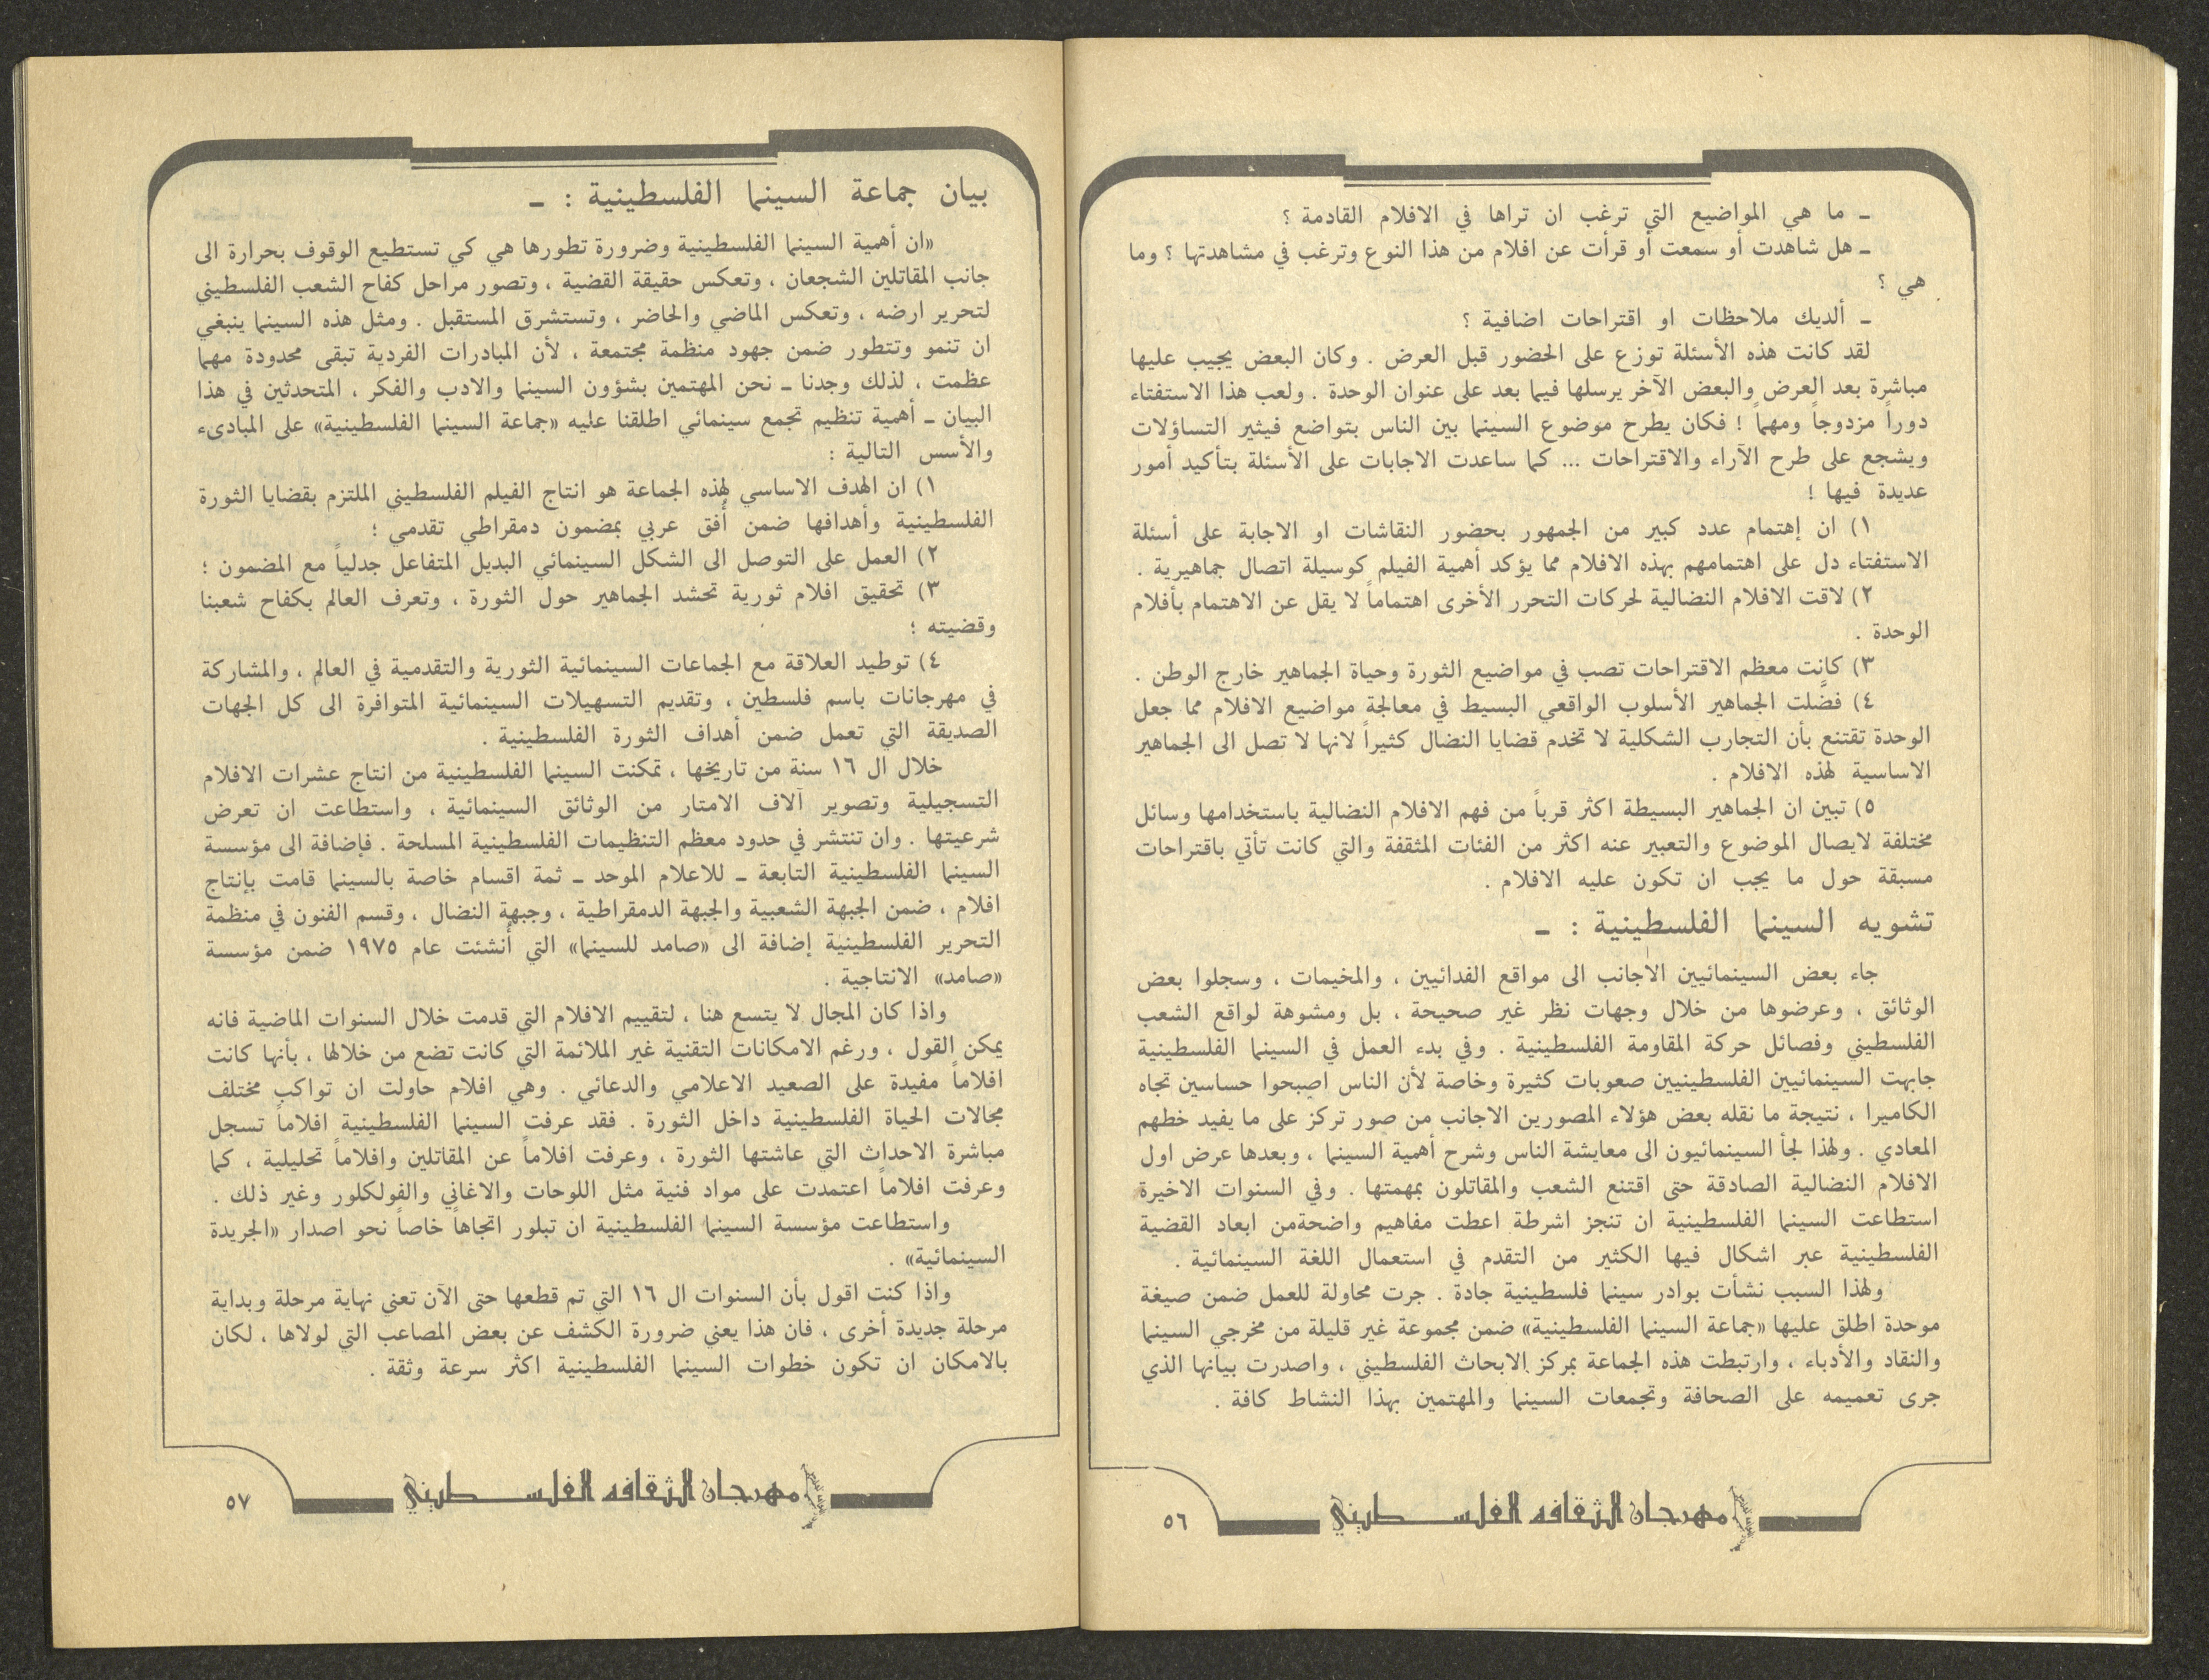 ـ ما هي المواضيع التي ترغب ان تراها في الافلام القادمة ؟
ـ هل شاهدت أو سمعت أو قرأت عن افلام من هذا النوع وترغب في مشاهدتها ؟ وما
هي ؟
ـ ألديك ملاحظات او اقتراحات اضافية ؟
لقد كانت هذه الأسئلة توزع على الحضور قبل العرض . وكان البعض يجيب عليها
مباشرة بعد العرض والبعض الآخر يرسلها فيما بعد على عنوان الوحدة . ولعب هذا الاستفتاء
دوراً مزدوجاً ومهماً ! فكان يطرح موضوع السينما بين الناس بتواضع فيثير التساؤلات
ويشجع على طرح الآراء والاقتراحات ... كما ساعدت الاجابات على الأسئلة بتأكيد أمور
عديدة فيها !
١) ان إهتمام عدد كبير من الجمهور بحضور النقاشات او الاجابة على أسئلة
الاستفتاء دل على اهتمامهم بهذه الافلام مما يؤكد أهمية الفيلم كوسيلة اتصال جماهيرية .
٢) لاقت الافلام النضالية لحركات التحرر الأخرى اهتماماً لا يقل عن الاهتمام بأفلام
الوحدة .
٣) كانت معظم الاقتراحات تصب في مواضيع الثورة وحياة الجماهير خارج الوطن .
٤) فضّلت الجماهير الأسلوب الواقعي البسيط في معالجة مواضيع الافلام مما جعل
الوحدة تقتنع بأن التجارب الشكلية لا تخدم قضايا النضال كثيراً لانها لا تصل الى الجماهير
الاساسية لهذه الافلام .
٥) تبين ان الجماهير البسيطة اكثر قرباً من فهم الافلام النضالية باستخدامها وسائل
مختلفة لايصال الموضوع والتعبير عنه اكثر من الفئات المثقفة والتي كانت تأتي باقتراحات
مسبقة حول ما يجب ان تكون عليه الافلام .
تشويه السينما الفلسطينية : ـ
جاء بعض السينمائيين الأجانب الى مواقع الفدائيين ، والمخيمات ، وسجلوا بعض
الوثائق ، وعرضوها من خلال وجهات نظر غير صحيحة ، بل ومشوهة لواقع الشعب
الفلسطيني وفصائل حركة المقاومة الفلسطينية . وفي بدء العمل في السينما الفلسطينية
جابهت السينمائيين الفلسطينيين صعوبات كثيرة وخاصة لأن الناس اصبحوا حساسين تجاه
الكاميرا ، نتيجة ما نقله بعض هؤلاء المصورين الاجانب من صور تركز على ما يفيد خطهم
المعادي . ولهذا لجأ السينمائيون الى معايشة الناس وشرح أهمية السينما ، وبعدها عرض اول
الافلام النضالية الصادقة حتى اقتنع الشعب والمقاتلون بمهمتها . وفي السنوات الاخيرة
استطاعت السينما الفلسطينية ان تنجز اشرطة اعطت مفاهيم واضحةمن ابعاد القضية
الفلسطينية عبر اشكال فيها الكثير من التقدم في استعمال اللغة السينمائية .
ولهذا السبب نشأت بوادر سينما فلسطينية جادة . جرت محاولة للعمل ضمن صيغة
موحدة اطلق عليها «جماعة السينما الفلسطينية» ضمن مجموعة غير قليلة من مخرجي السينما
والنقاد والأدباء ، وارتبطت هذه الجماعة بمركز الابحاث الفلسطيني ، واصدرت بيانها الذي
جرى تعميمه على الصحافة وتجمعات السينما والمهتمين بهذا النشاط كافة .
مهرجان الثقافه الفلسطيني
٥٦
بيان جماعة السينما الفلسطينية : ـ
«ان أهمية السينما الفلسطينية وضرورة تطورها هي كي تستطيع الوقوف بحرارة الى
جانب المقاتلين الشجعان ، وتعكس حقيقة القضية ، وتصور مراحل كفاح الشعب الفلسطيني
لتحرير ارضه ، وتعكس الماضي والحاضر ، وتستشرق المستقبل . ومثل هذه السينما ينبغي
ان تنمو وتتطور ضمن جهود منظمة مجتمعة ، لأن المبادرات الفردية تبقى محدودة مهما
عظمت ، لذلك وجدنا ـ نحن المهتمين بشؤون السينما والادب والفكر ، المتحدثين في هذا
البيان ـ أهمية تنظيم تجمع سينمائي اطلقنا عليه «جماعة السينما الفلسطينية» على المبادىء
والأسس التالية :
١) ان الهدف الاساسي لهذه الجماعة هو انتاج الفيلم الفلسطيني الملتزم بقضايا الثورة
الفلسطينية وأهدافها ضمن أُفق عربي بمضمون دمقراطي تقدمي ؛
٢) العمل على التوصل الى الشكل السينمائي البديل المتفاعل جدلياً مع المضمون ؛
٣) تحقيق افلام ثورية تحشد الجماهير حول الثورة ، وتعرف العالم بكفاح شعبنا
وقضيته ؛
٤) توطيد العلاقة مع الجماعات السينمائية الثورية والتقدمية في العالم ، والمشاركة
في مهرجانات باسم فلسطين ، وتقديم التسهيلات السينمائية المتوافرة الى كل الجهات
الصديقة التي تعمل ضمن أهداف الثورة الفلسطينية .
خلال ال ١٦ سنة من تاريخها ، تمكنت السينما الفلسطينية من انتاج عشرات الافلام
التسجيلية وتصوير آلاف الامتار من الوثائق السينمائية ، واستطاعت ان تعرض
شرعيتها . وان تنتشر في حدود معظم التنظيمات الفلسطينية المسلحة . فإضافة الى مؤسسة
السينما الفلسطينية التابعة ـ للاعلام الموحد ـ ثمة اقسام خاصة بالسينما قامت بإنتاج
افلام ، ضمن الجبهة الشعبية والجبهة الدمقراطية ، وجبهة النضال ، وقسم الفنون في منظمة
التحرير الفلسطينية إضافة الى «صامد للسينما» التي أُنشئت عام ١٩٧٥ ضمن مؤسسة
«صامد» الانتاجية .
واذا كان المجال لا يتسع هنا ، لتقييم الافلام التي قدمت خلال السنوات الماضية فانه
يمكن القول ، ورغم الامكانات التقنية غير الملائمة التي كانت تضع من خلالها ، بأنها كانت
افلاماً مفيدة على الصعيد الاعلامي والدعائي . وهي افلام حاولت ان تواكب مختلف
مجالات الحياة الفلسطينية داخل الثورة . فقد عرفت السينما الفلسطينية افلاماً تسجل
مباشرة الاحداث التي عاشتها الثورة ، وعرفت افلاماً عن المقاتلين وافلاماً تحليلية ، كما
وعرفت افلاماً اعتمدت على مواد فنية مثل اللوحات والاغاني والفولكلور وغير ذلك .
واستطاعت مؤسسة السينما الفلسطينية ان تبلور اتجاهاً خاصاً نحو اصدار «الجريدة
السينمائية» .
واذا كنت اقول بأن السنوات ال ١٦ التي تم قطعها حتى الآن تعني نهاية مرحلة وبداية
مرحلة جديدة أخرى ، فان هذا يعني ضرورة الكشف عن بعض المصاعب التي لولاها ، لكان
بالامكان ان تكون خطوات السينما الفلسطينية اكثر سرعة وثقة .
مهرجان الثقافه الفلسطيني
٥٧